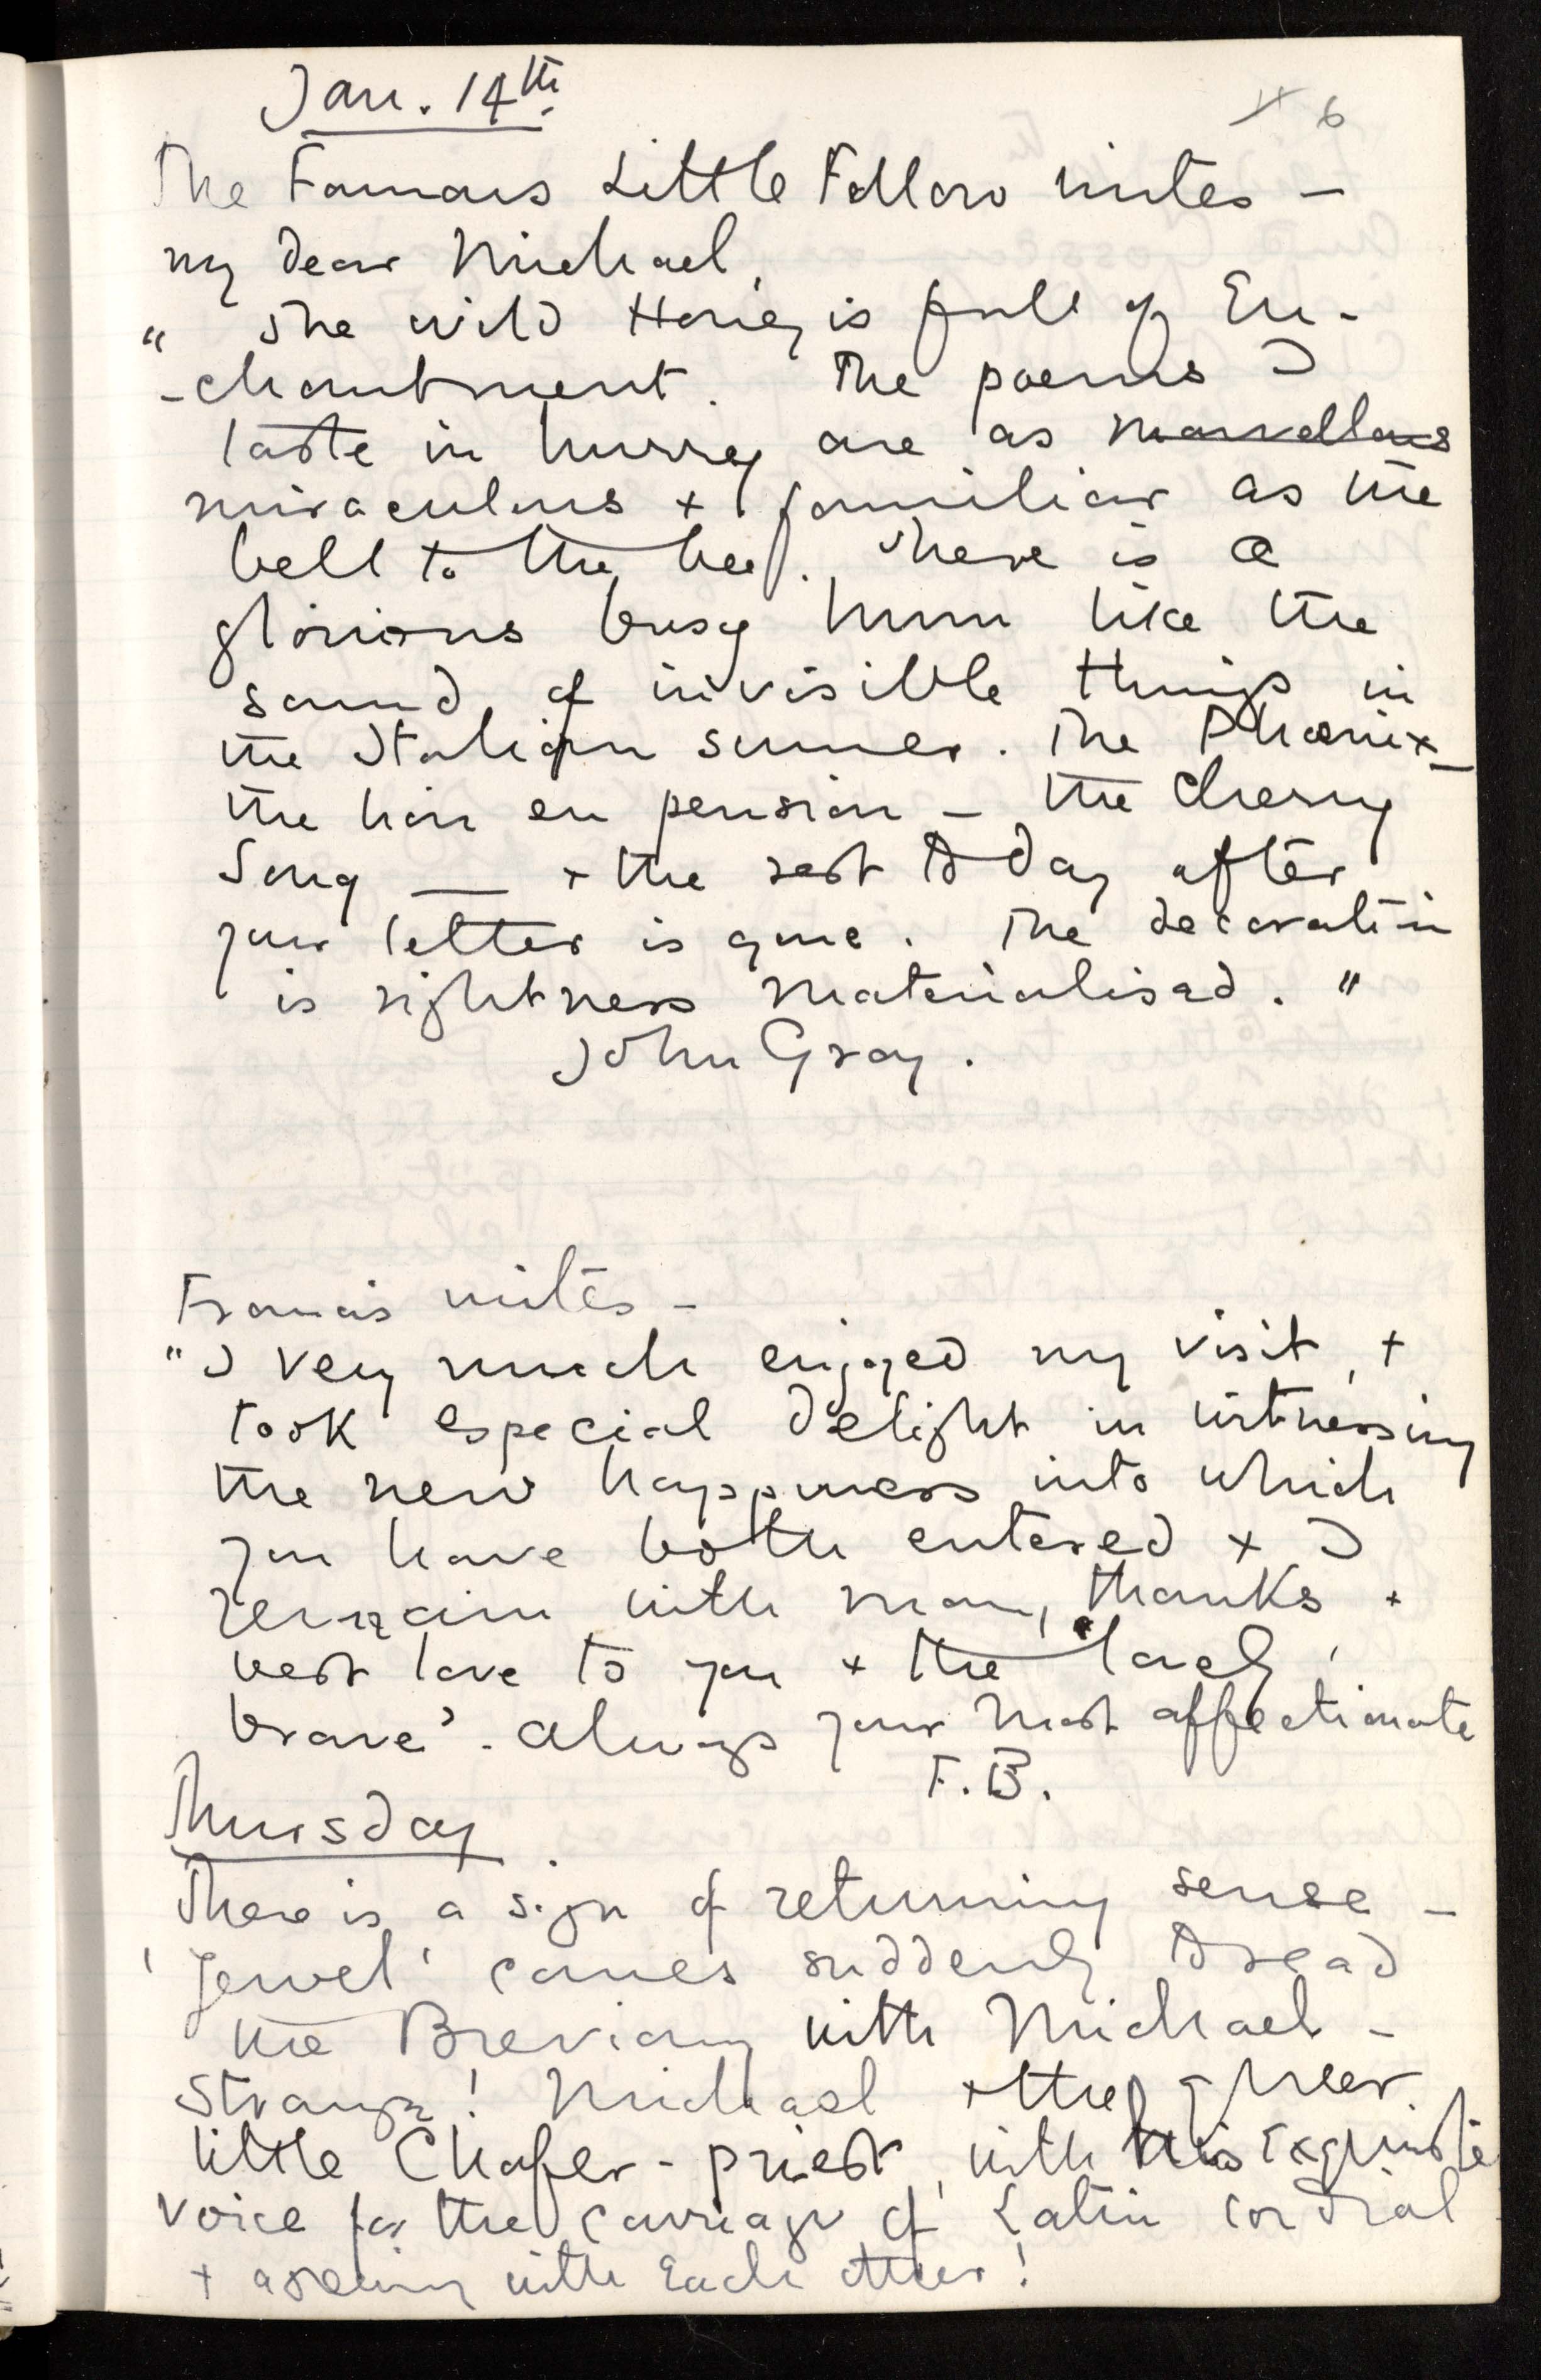 Jan. 14th.
6
The Famous Little Fellow writes –
my dear Michael,
" The Wild Honey is full of En-
-chantment. The poems I
taste in hurry are as marvellous
miraculous + familiar as the
bell to the bee. There is a
glorious busy hum like the
sound of invisible things in
the Italian summer. The Phoenix –
the lion en pension – the Cherry
Song — + the rest to day after
your letter is gone. The decoration
is rightness materialised. "
John Gray.
Francis writes –
" I very much enjoyed my visit, +
took especial delight in witnessing
the new happiness into which
you have both entered + I
remain with many thanks +
best love to you + the 'lovely,
brave'. Always your most affectionate
F.B.
Thursday.
There is a sign of returning sense –
'Jewel' comes suddenly to read
the Breviary with Michael –
Strange! Michael + the queer
little Chafer-priest, with his exquisite
voice for the carriage of Latin cordial
+ agreeing with Each other!